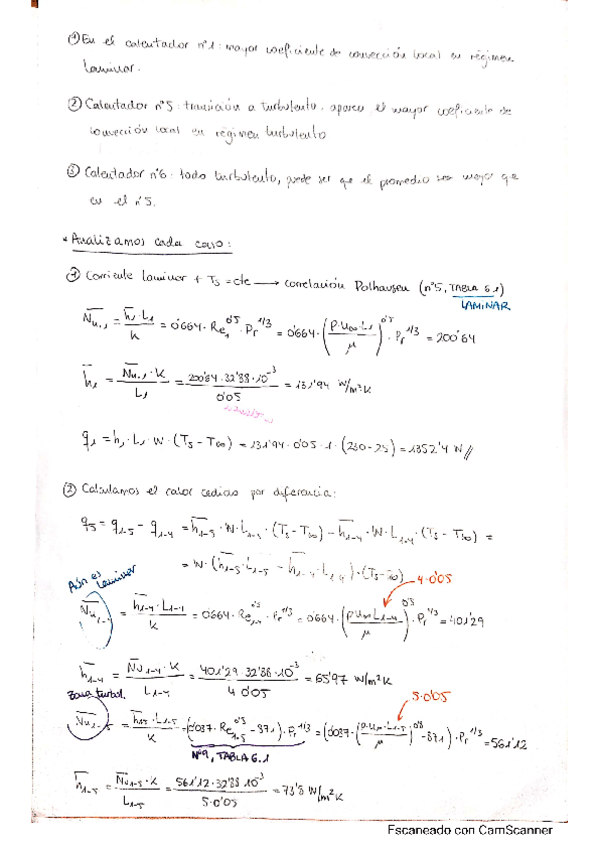 ① En el calentador nº1: mayor coeficiente de convección local en régimen
laminar.
② Calentador nº5: transición a turbulento. aparece el mayor coeficiente de
convección local en régimen turbulento
③ Calentador nº6: todo turbulento, puede ser que el promedio sea mayor que
en el nº5.
* Analizamos cada caso:
① Corriente laminar + Ts = cte → correlación Polhausen (nº5, TABLA 6.1)
LAMINAR
Nu₁ = h₁·L₁/k = 0'664·Re₁^0'5·Pr^1/3 = 0'664·(ρ·u∞·L₁/μ)^0'5·Pr^1/3 = 200'64
h₁ = Nu₁·k/L₁ = 200'64·32'88·10⁻³/0'05 = 131'94 W/m²K
q₁ = h₁·L₁·W·(Ts-T∞) = 131'94·0'05·1·(230-25) = 1352'4 W//
② Calculamos el calor cedido por diferencia:
q₅ = q₁₋₅ - q₁₋₄ = h₁₋₅·W·L₁₋₅·(Ts-T∞) - h₁₋₄·W·L₁₋₄·(Ts-T∞) =
= W·(h₁₋₅·L₁₋₅ - h₁₋₄·L₁₋₄)·(Ts-T∞)
Aún es laminar
4·0'05
Nu₁₋₄ = h₁₋₄·L₁₋₄/k = 0'664·Re₁₋₄^0'5·Pr^1/3 = 0'664·(ρ·u∞·L₁₋₄/μ)^0'5·Pr^1/3 = 401'29
h₁₋₄ = Nu₁₋₄·k/L₁₋₄ = 401'29·32'88·10⁻³/4·0'05 = 65'97 W/m²K
Zona turbul.
5·0'05
Nu₁₋₅ = h₁₋₅·L₁₋₅/k = (0'037·Re₁₋₅^0'8-871)·Pr^1/3 = (0'037·(ρ·u∞·L₁₋₅/μ)^0'8-871)·Pr^1/3 = 561'12
Nº9, TABLA 6.1
h₁₋₅ = Nu₁₋₅·k/L₁₋₅ = 561'12·32'88·10⁻³/5·0'05 = 73'8 W/m²K
Escaneado con CamScanner